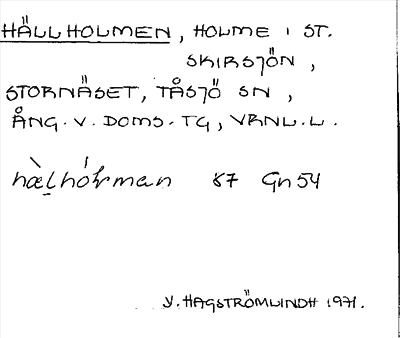 HÄLLHOLMEN, HOLME I ST.
SKIRSJÖN,
STORNÄSET, TÅSJÖ SN,
ÅNG. V. DOMS. TG, VRNL.L.
hæ̀lhóɫman 87 Gn54
Y. HAGSTRÖMLINDH 1971.